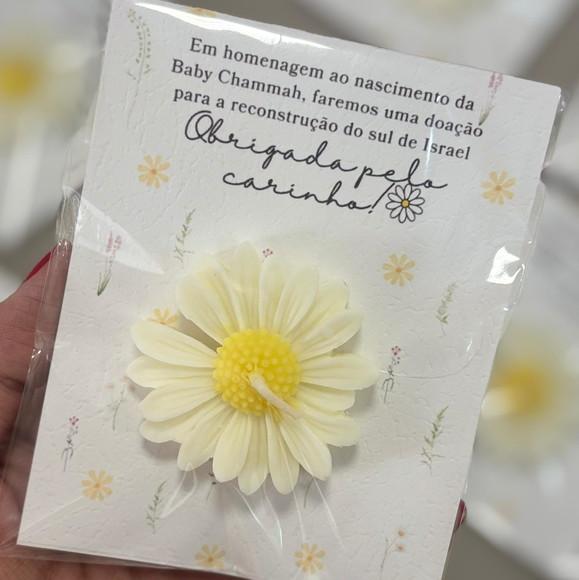 Em homenagem ao nascimento da
Baby Chammah, faremos uma doação
para a reconstrução do sul de Israel
Obrigada pelo
carinho!